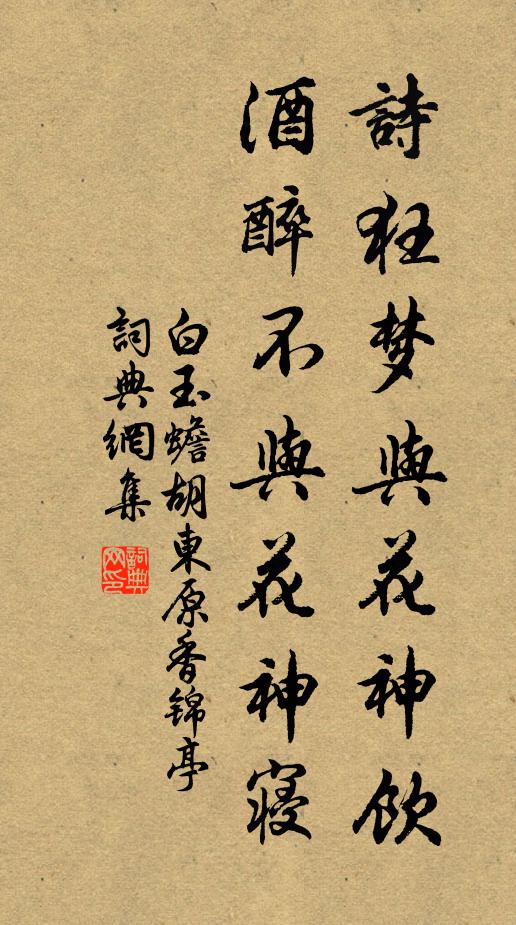 詩狂梦與花神飲
酒醉不與花神寝
白玉蟾胡東原香锦亭
詞典網集
詞典網印